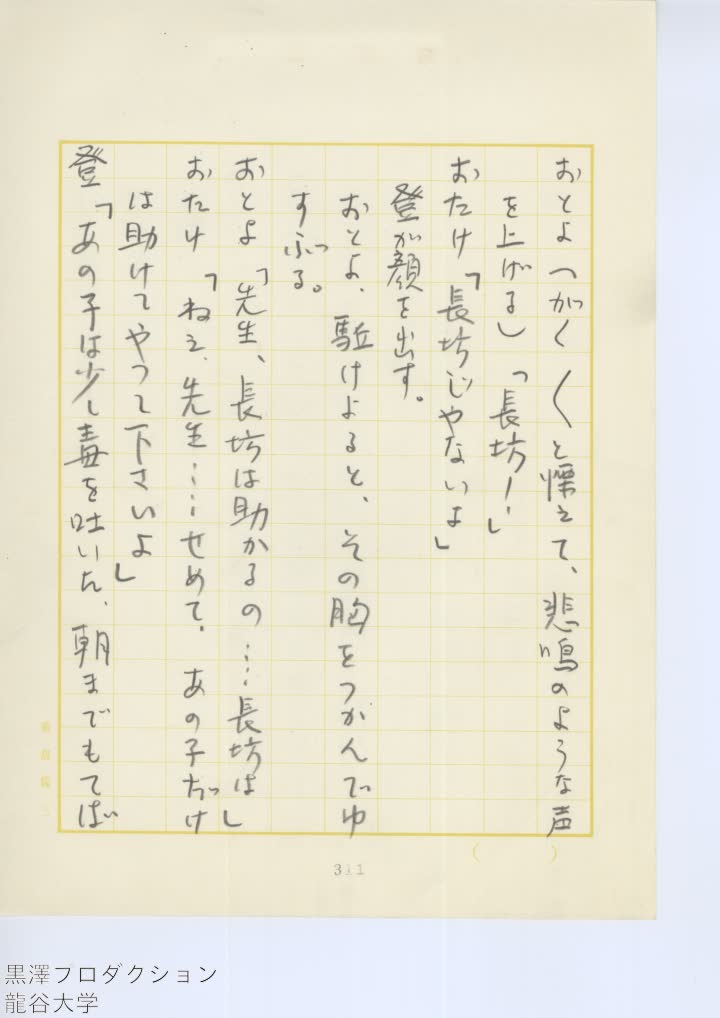 おとよ（がく〳〵と慄えて、悲鳴のような声
を上げる）「長坊！」
おたけ「長坊じゃないよ」
登が顔を出す。
おとよ、駈けよると、その胸をつかんでゆ
すぶる。
おとよ「先生、長坊は助かるの……長坊は」
おたけ「ねえ、先生……せめて、あの子だけ
は助けてやって下さいよ」
登「あの子は少し毒を吐いた、朝までもてば
311
黒澤プロダクション
龍谷大学